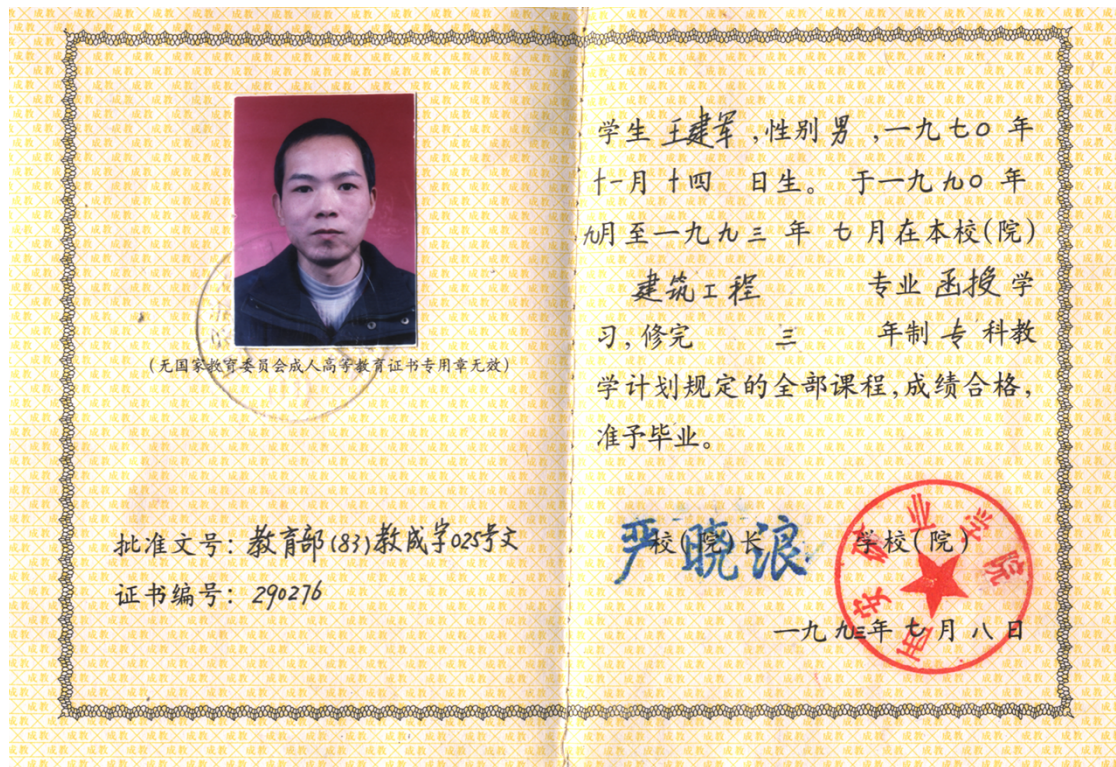 (无国家教育委员会成人高等教育证书专用章无效)
批准文号：教育部(83)教成字025号文
证书编号：290276
学生 王建军，性别 男，一九七〇 年
十一月 十四 日生。 于一九九〇 年
九月至一九九三 年 七 月在本校(院)
建筑工程 专业 函授 学
习，修完 三 年制 专 科教
学计划规定的全部课程，成绩合格，
准予毕业。
校(院)长 严晓浪 学校(院)
西安矿业学院
一九九三年 七 月 八 日